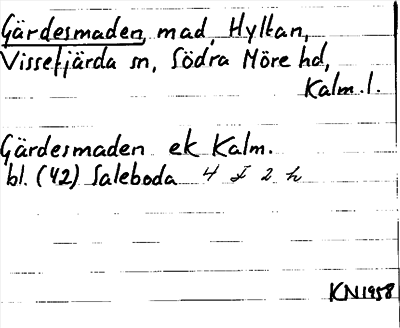 Gärdesmaden, mad, Hyltan,
Vissefjärda sn, Södra Möre hd,
Kalm. l.
Gärdesmaden ek Kalm.
bl. (42) Saleboda 4 I 2 h
KN 1958